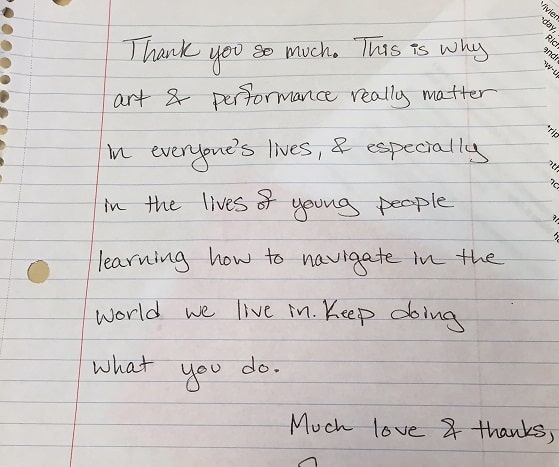 Thank you so much. This is why
art & performance really matter
in everyone's lives, & especially
in the lives of young people
learning how to navigate in the
world we live in. Keep doing
what you do.
Much love & thanks,